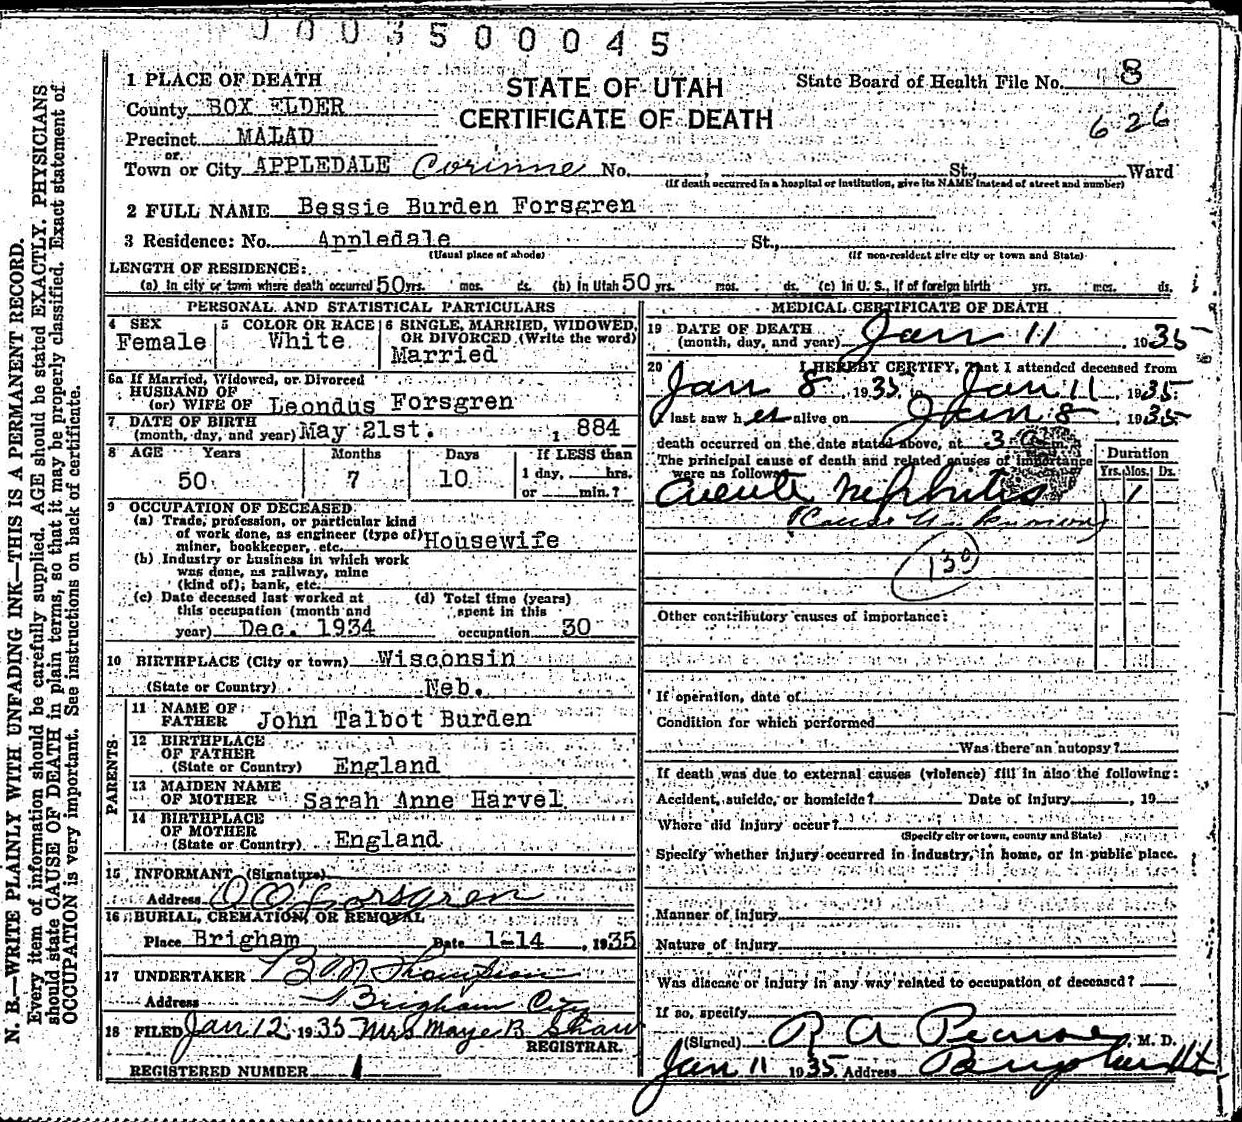 0003500045
1 PLACE OF DEATH
STATE OF UTAH
CERTIFICATE OF DEATH
State Board of Health File No. 8
626
County BOX ELDER
Precinct MALAD
or
Town or City APPLEDALE Corinne No. , St., Ward
(If death occurred in a hospital or institution, give its NAME instead of street and number)
2 FULL NAME Bessie Burden Forsgren
3 Residence: No. Appledale St.,
(Usual place of abode) (If non-resident give city or town and State)
LENGTH OF RESIDENCE:
(a) In city or town where death occurred 50 yrs. mos. ds. (b) In Utah 50 yrs. mos. ds. (c) In U. S., if of foreign birth yrs. mos. ds.
PERSONAL AND STATISTICAL PARTICULARS
4 SEX Female
5 COLOR OR RACE White
6 SINGLE, MARRIED, WIDOWED, OR DIVORCED (Write the word) Married
6a If Married, Widowed, or Divorced
HUSBAND OF
(or) WIFE OF Leondus Forsgren
7 DATE OF BIRTH
(month, day, and year) May 21st. 1884
8 AGE Years Months Days If LESS than
50 7 10 1 day, hrs.
or min.?
9 OCCUPATION OF DECEASED
(a) Trade, profession, or particular kind
of work done, as engineer (type of)
miner, bookkeeper, etc. Housewife
(b) Industry or business in which work
was done, as railway, mine
(kind of); bank, etc.
(c) Date deceased last worked at
this occupation (month and
year) Dec. 1934
(d) Total time (years)
spent in this
occupation 30
10 BIRTHPLACE (City or town) Wisconsin
(State or Country) Neb.
PARENTS
11 NAME OF
FATHER John Talbot Burden
12 BIRTHPLACE
OF FATHER
(State or Country) England
13 MAIDEN NAME
OF MOTHER Sarah Anne Harvel
14 BIRTHPLACE
OF MOTHER
(State or Country) England
15 INFORMANT (Signature)
Address O O Forsgren
16 BURIAL, CREMATION, OR REMOVAL
Place Brigham Date 1-14, 1935
17 UNDERTAKER B M Thompson
Address Brigham City
18 FILED Jan 12 1935 Mrs Maye B Shaw
REGISTRAR.
REGISTERED NUMBER 1
MEDICAL CERTIFICATE OF DEATH
19 DATE OF DEATH
(month, day, and year) Jan 11, 1935
20 I HEREBY CERTIFY, That I attended deceased from
Jan 8, 1935 to Jan 11 1935.
I last saw her alive on Jan 8 1935
death occurred on the date stated above, at 3 m.
The principal cause of death and related causes of importance
were as follows:
Duration
Yrs. Mos. Ds.
Acute Nephritis 1
(Cause Unknown)
130
Other contributory causes of importance:
If operation, date of
Condition for which performed
Was there an autopsy?
If death was due to external causes (violence) fill in also the following:
Accident, suicide, or homicide? Date of injury , 19
Where did injury occur?
(Specify city or town, county and State)
Specify whether injury occurred in industry, in home, or in public place.
Manner of injury
Nature of injury
Was disease or injury in any way related to occupation of deceased?
If so, specify
(Signed) R A Pearse M. D.
Jan 11 1935 Address
N. B.—WRITE PLAINLY WITH UNFADING INK—THIS IS A PERMANENT RECORD.
Every item of information should be carefully supplied. AGE should be stated EXACTLY. PHYSICIANS
should state CAUSE OF DEATH in plain terms, so that it may be properly classified. Exact statement of
OCCUPATION is very important. See instructions on back of certificate.